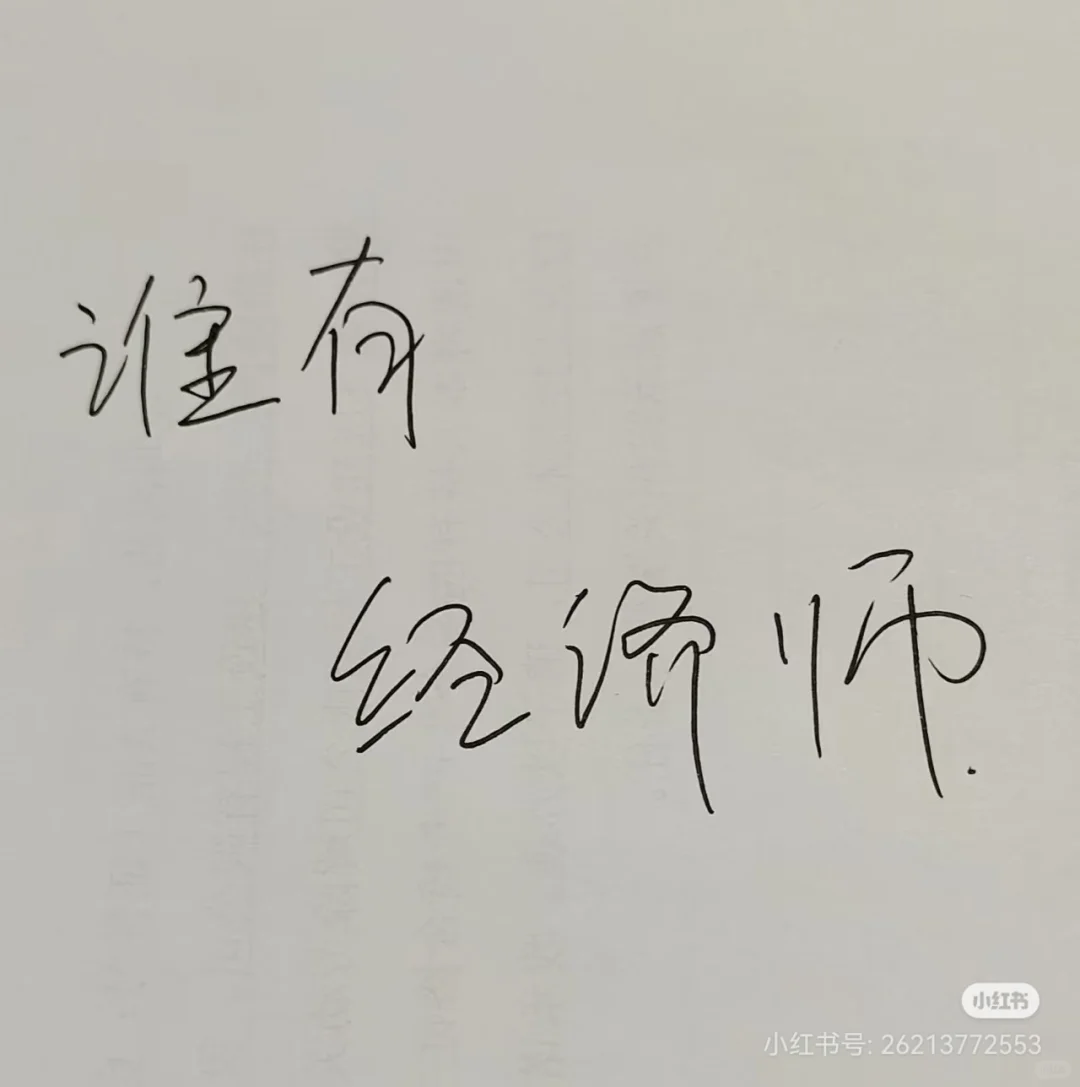 谁有
经济师.
小红书
小红书号: 26213772553